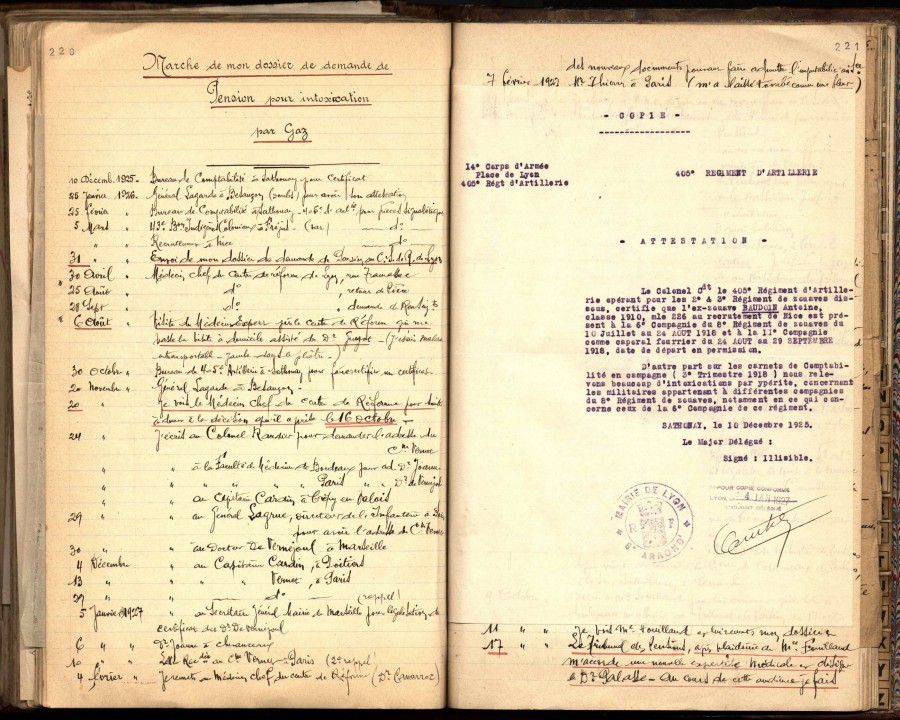 220
Marche de mon dossier de demande de
Pension pour intoxication
par Gaz
10 Décemb. 1925- Bureau de Comptabilité à Sathonay pour certificat
25 Janvier 1926. Général Lagarde à Besançon pour avoir son attestation
25 février " Bureau de Comptabilité à Sathonay - 405e d'art pour pièces
5 Mars "
" " Recrutement à Nice do
31 " Envoi de mon dossier de demande de Pension au
30 Avril " Médecin chef du Centre de réforme de Lyon, rue
25 Août " do , retour de
28 Sept " do , demande de
" 6 Août " visite du Médecin Expert près le centre de Réforme qui me
passe la visite à domicile assisté du Dr - J'étais malade
intransportable - jambe dans le plâtre -
30 octobre " Bureau du 405e Artillerie à Sathonay pour faire rectifier un certificat
20 novembre " Général Lagarde à Besançon -
20 " Je vois le Médecin Chef du centre de Réforme pour
à la décision qu'il a prise le 16 octobre
24 " J'écris au Colonel pour demander l'adresse du
Cne Vernet
" " à la Faculté de Médecine de Bordeaux pour ad. Dr
" " " " " Paris " "
" " au Capitaine Cardin à Crépy en Valois
29 " au Général Lagrue, Directeur de l'Infanterie à
pour avoir l'adresse du Cne Vernet
30 " " au Docteur De Vernejoul à Marseille
4 Décembre " au Capitaine Cardin, à Poitiers
13 " " " Vernet, à Paris
27 " " do (rappel)
5 Janvier 1927 " au Secrétaire Général Mairie de Marseille pour légalisation du
certificat du Dr De Vernejoul
6 " "
10 " " au Cne Vernet - Paris (2e rappel)
4 février " Je remets au Médecin chef du centre de Réforme
221
des nouveaux documents pouvant faire admettre l'imputabilité
7 février 1927 Mr Thierry à Paris (m'a laissé tombé comme une fleur)
- COPIE -
14° Corps d'Armée
Place de Lyon
405° Régt d'Artillerie
405° REGIMENT D'ARTILLERIE
- ATTESTATION -
Le Colonel Cdt le 405° Régiment d'Artille-
rie opérant pour les 2° & 3° Régiment de zouaves dis-
sous, certifie que l'ex-zouave BAUDOIN Antoine,
classe 1910, mle 226 au recrutement de Nice est pré-
sent à la 6° Compagnie du 8° Régiment de zouaves du
10 Juillet au 24 AOUT 1918 et à la 11° Compagnie
comme caporal fourrier du 24 AOUT au 29 SEPTEMBRE
1918, date de départ en permission.
D'autre part sur les carnets de Comptabi-
lité en campagne ( 3° Trimestre 1918 ) nous rele-
vons beaucoup d'intoxications par ypérite, concernant
les militaires appartenant à différentes compagnies
du 8° Régiment de zouaves, notament en ce qui con-
cerne ceux de la 6° Compagnie de ce régiment.
SATHONAY, le 10 Décembre 1925.
Le Major Délégué :
Signé : Illisible.
POUR COPIE CONFORME
LYON, LE 4 JAN 1927
L'ADJOINT DÉLÉGUÉ
MAIRIE DE LYON
R F
6e ARROND.
11 " " Je vois Me Fouilland
17 " " Le Tribunal de Pensions, après plaidoirie de Me Fouilland
m'accorde une nouvelle expertise médicale et désigne
le Dr - Au cours de cette audience je fais